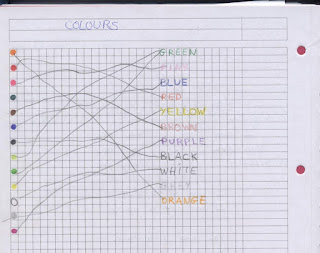 COLOURS
GREEN
PINK
BLUE
RED
YELLOW
BROWN
PURPLE
BLACK
WHITE
GREY
ORANGE